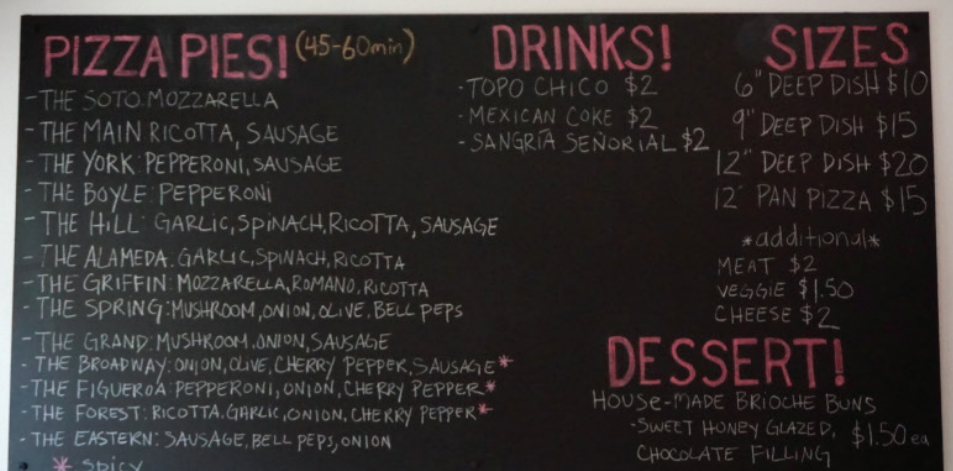 PIZZA PIES! (45-60min)
-THE SOTO: MOZZARELLA
-THE MAIN RICOTTA, SAUSAGE
-THE YORK: PEPPERONI, SAUSAGE
-THE BOYLE: PEPPERONI
-THE HILL: GARLIC, SPINACH, RICOTTA, SAUSAGE
-THE ALAMEDA: GARLIC, SPINACH, RICOTTA
-THE GRIFFIN: MOZZARELLA, ROMANO, RICOTTA
-THE SPRING: MUSHROOM, ONION, OLIVE, BELL PEPS
-THE GRAND: MUSHROOM, ONION, SAUSAGE
-THE BROADWAY: ONION, OLIVE, CHERRY PEPPER, SAUSAGE*
-THE FIGUEROA: PEPPERONI, ONION, CHERRY PEPPER*
-THE FOREST: RICOTTA, GARLIC, ONION, CHERRY PEPPER*
-THE EASTERN: SAUSAGE, BELL PEPS, ONION
* SPICY
DRINKS!
-TOPO CHICO $2
-MEXICAN COKE $2
-SANGRÍA SEÑORIAL $2
SIZES
6" DEEP DISH $10
9" DEEP DISH $15
12" DEEP DISH $20
12" PAN PIZZA $15
*additional*
MEAT $2
VEGGIE $1.50
CHEESE $2
DESSERT!
HOUSE-MADE BRIOCHE BUNS
-SWEET HONEY GLAZED, $1.50 ea
CHOCOLATE FILLING